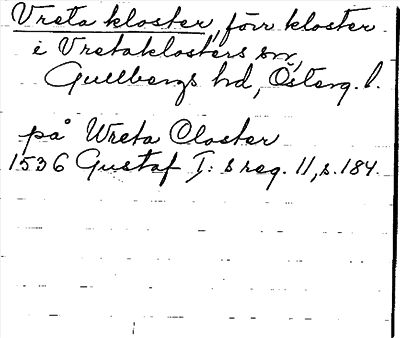 Vreta kloster, förr kloster
i Vretaklosters sn,
Gullbergs hd, Österg. l.
på Wreta Closter
1536 Gustaf I:s reg. 11, s. 184.